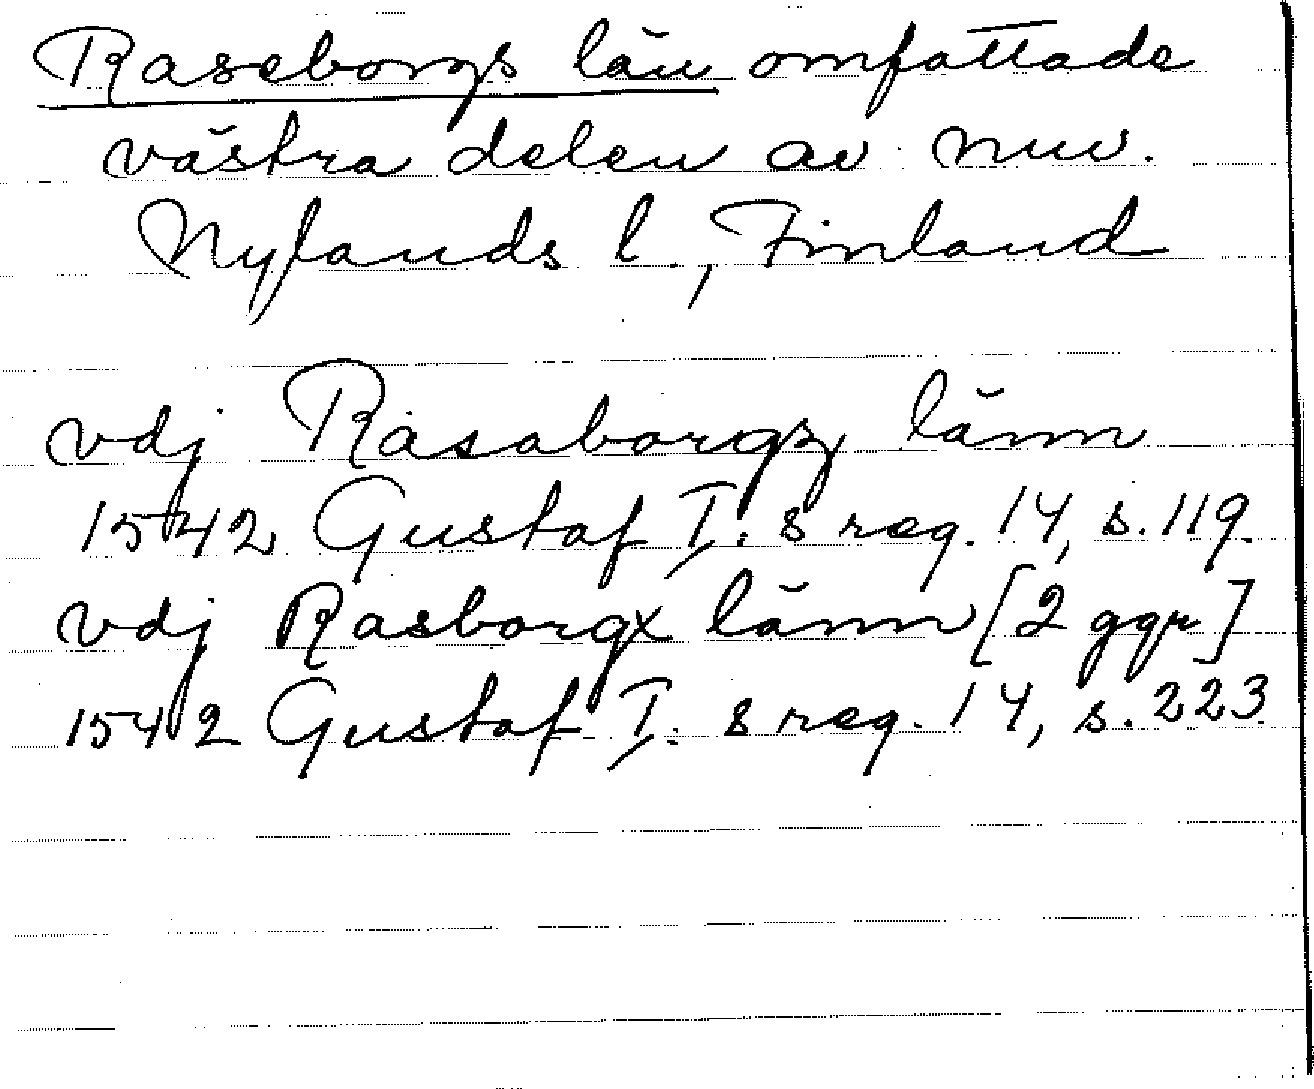 Raseborgs län omfattade
västra delen av nuv.
Nylands l., Finland
vdj Rasaborgz länn
1542 Gustaf I:s reg. 14, s. 119.
vdj Rasborgx länn [2 ggr]
1542 Gustaf I:s reg. 14, s. 223